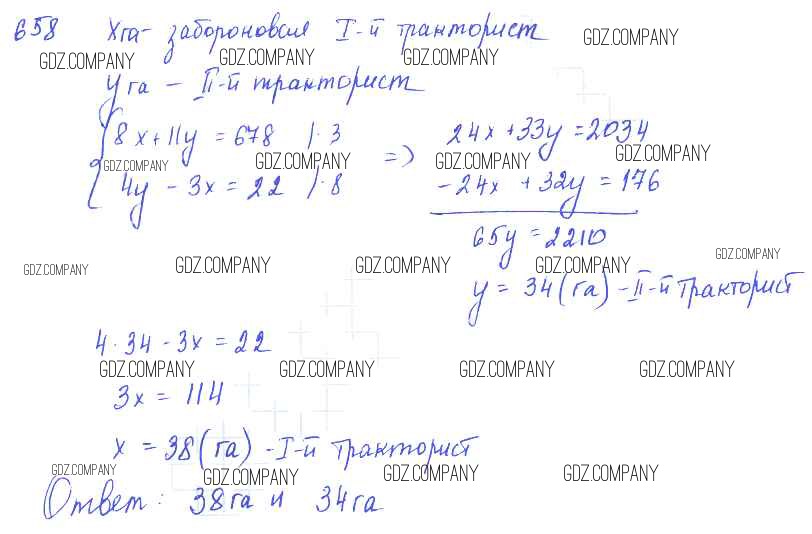 658 X га - забороновал I-й тракторист
GDZ.COMPANY GDZ.COMPANY GDZ.COMPANY GDZ.COMPANY
y га - II-й тракторист
8x + 11y = 678 | · 3 => 24x + 33y = 2034
GDZ.COMPANY GDZ.COMPANY GDZ.COMPANY GDZ.COMPANY
4y - 3x = 22 | · 8 - 24x + 32y = 176
65y = 2210
GDZ.COMPANY GDZ.COMPANY GDZ.COMPANY GDZ.COMPANY GDZ.COMPANY
y = 34 (га) - II-й тракторист
4 · 34 - 3x = 22
GDZ.COMPANY GDZ.COMPANY GDZ.COMPANY GDZ.COMPANY
3x = 114
x = 38 (га) - I-й тракторист
GDZ.COMPANY GDZ.COMPANY GDZ.COMPANY GDZ.COMPANY
Ответ: 38 га и 34 га